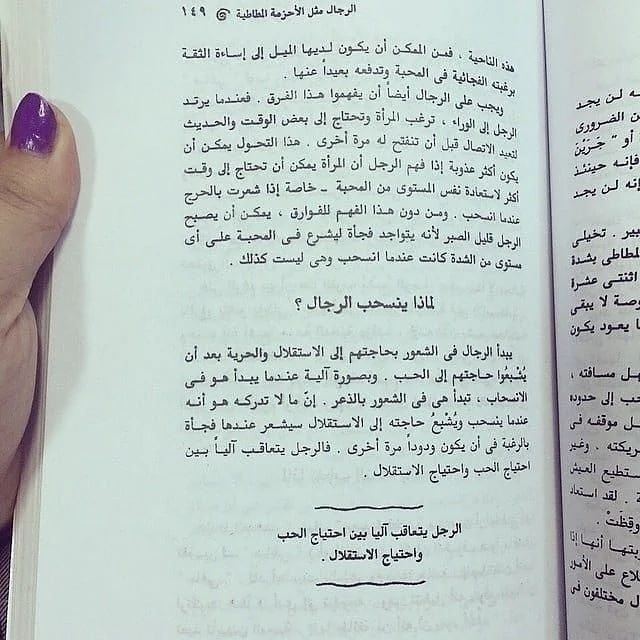 الرجال مثل الأحزمة المطاطية ١٤٩
هذه الناحية ، فمن الممكن أن يكون لديها الميل إلى إساءة الثقة
برغبته الفجائية فى المحبة وتدفعه بعيداً عنها .
ويجب على الرجال أيضاً أن يفهموا هذا الفرق . فعندما يرتد
الرجل إلى الوراء ، ترغب المرأة وتحتاج إلى بعض الوقت والحديث
لتعيد الاتصال قبل أن تنفتح له مرة أخرى . هذا التحول يمكن أن
يكون أكثر عذوبة إذا فهم الرجل أن المرأة يمكن أن تحتاج إلى وقت
أكثر لاستعادة نفس المستوى من المحبة ــ خاصة إذا شعرت بالحرج
عندما انسحب . ومن دون هذا الفهم للفوارق ، يمكن أن يصبح
الرجل قليل الصبر لأنه يتواجد فجأة ليشرع فى المحبة على أى
مستوى من الشدة كانت عندما انسحب وهى ليست كذلك .
لماذا ينسحب الرجال ؟
يبدأ الرجال فى الشعور بحاجتهم إلى الاستقلال والحرية بعد أن
يُشْبعُوا حاجتهم إلى الحب . وبصورة آلية عندما يبدأ هو فى
الانسحاب ، تبدأ هى فى الشعور بالذعر . إنّ ما لا تدركه هو أنه
عندما ينسحب ويُشْبعُ حاجته إلى الاستقلال سيشعر عندها فجأة
بالرغبة فى أن يكون ودوداً مرة أخرى . فالرجل يتعاقب آلياً بين
احتياج الحب واحتياج الاستقلال .
الرجل يتعاقب آليا بين احتياج الحب
واحتياج الاستقلال .
ه لن يجد
ن الضرورى
أو " حَزِيْنَ
فإنه حينئذ
إنه لن يجد
بير . تخيلى
المطاطى بشدة
اثنتى عشرة
رصة لا يبقى
ا يعود يكون
هل مسافته ،
حب إلى حدوده
ل موقفه فى
ريكته . وغير
ستطيع العيش
. لقد استعاد
وقِظَتْ .
بتها أنها إذا
لاع على الأمور
ل مختلفون فى